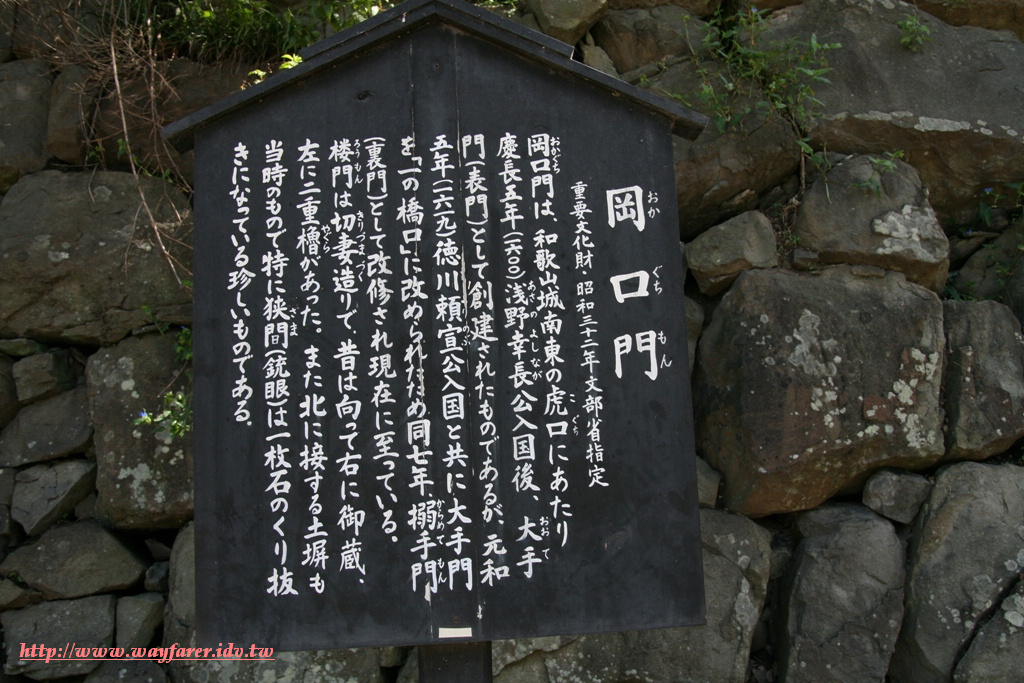 岡口門
おか ぐち もん
重要文化財・昭和三十二年文部省指定
岡口門は、和歌山城南東の虎口にあたり
おかぐち こぐち
慶長五年(一六〇〇)浅野幸長公入国後、大手
あさの よしなが おおて
門(表門)として創建されたものであるが、元和
五年(一六一九)徳川頼宣公入国と共に大手門
よりのぶ
を「一の橋口」に改められたため同七年、搦手門
からめて もん
(裏門)として改修され現在に至っている。
楼門は切妻造りで、昔は向って右に御蔵、
ろうもん きりづまづく
左に二重櫓があった。また北に接する土塀も
やぐら
当時のもので特に狭間(銃眼)は一枚石のくり抜
ざま
きになっている珍しいものである。
http://www.wayfarer.idv.tw